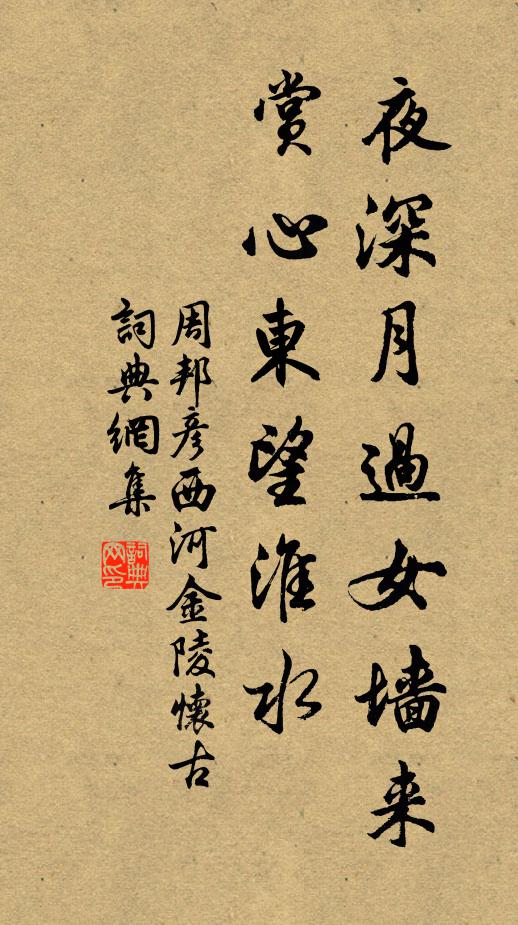 夜深月過女墻来
賞心東望淮水
周邦彦西河金陵懷古
詞典網集
詞典网印